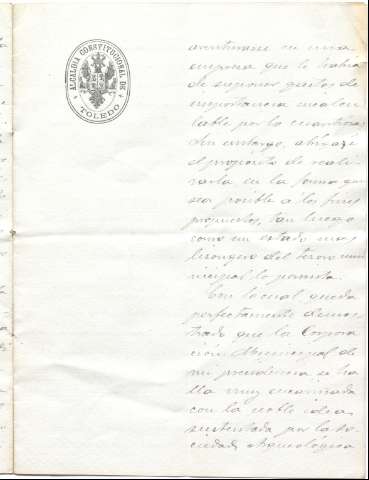 ALCALDIA CONSTITUCIONAL DE
TOLEDO
aventurarse en una
empresa que le habia
de suponer gastos de
importancia incalcu
lable por lo cuantiosa
Sin embargo, abriga
el propósito de reali
zarla en la forma que
sea posible á los fines
propuestos, tan luego
como un estado mas
lisongero del tesoro mu
nicipal lo permita.
Con lo cual queda
perfectamente demos
trado que la Corpora
cion Municipal de
mi presidencia se ha
lla muy encariñada
con la noble idea
sustentada por la So
ciedad Arqueológica